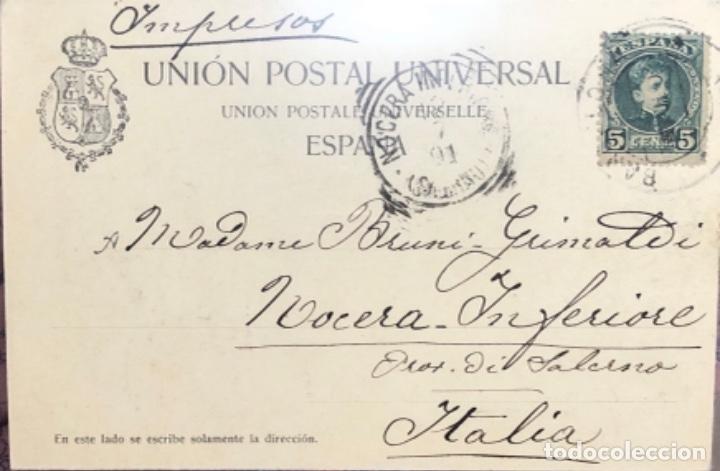 Impresos
UNIÓN POSTAL UNIVERSAL
UNION POSTALE UNIVERSELLE
ESPAÑA
ESPAÑA
5 CENT. 5
NOCERA INF
7
01
A Madame Bruni-Grimaldi
Nocera-Inferiore
Prov. di Salerno
Italia
En este lado se escribe solamente la dirección.
todocoleccion